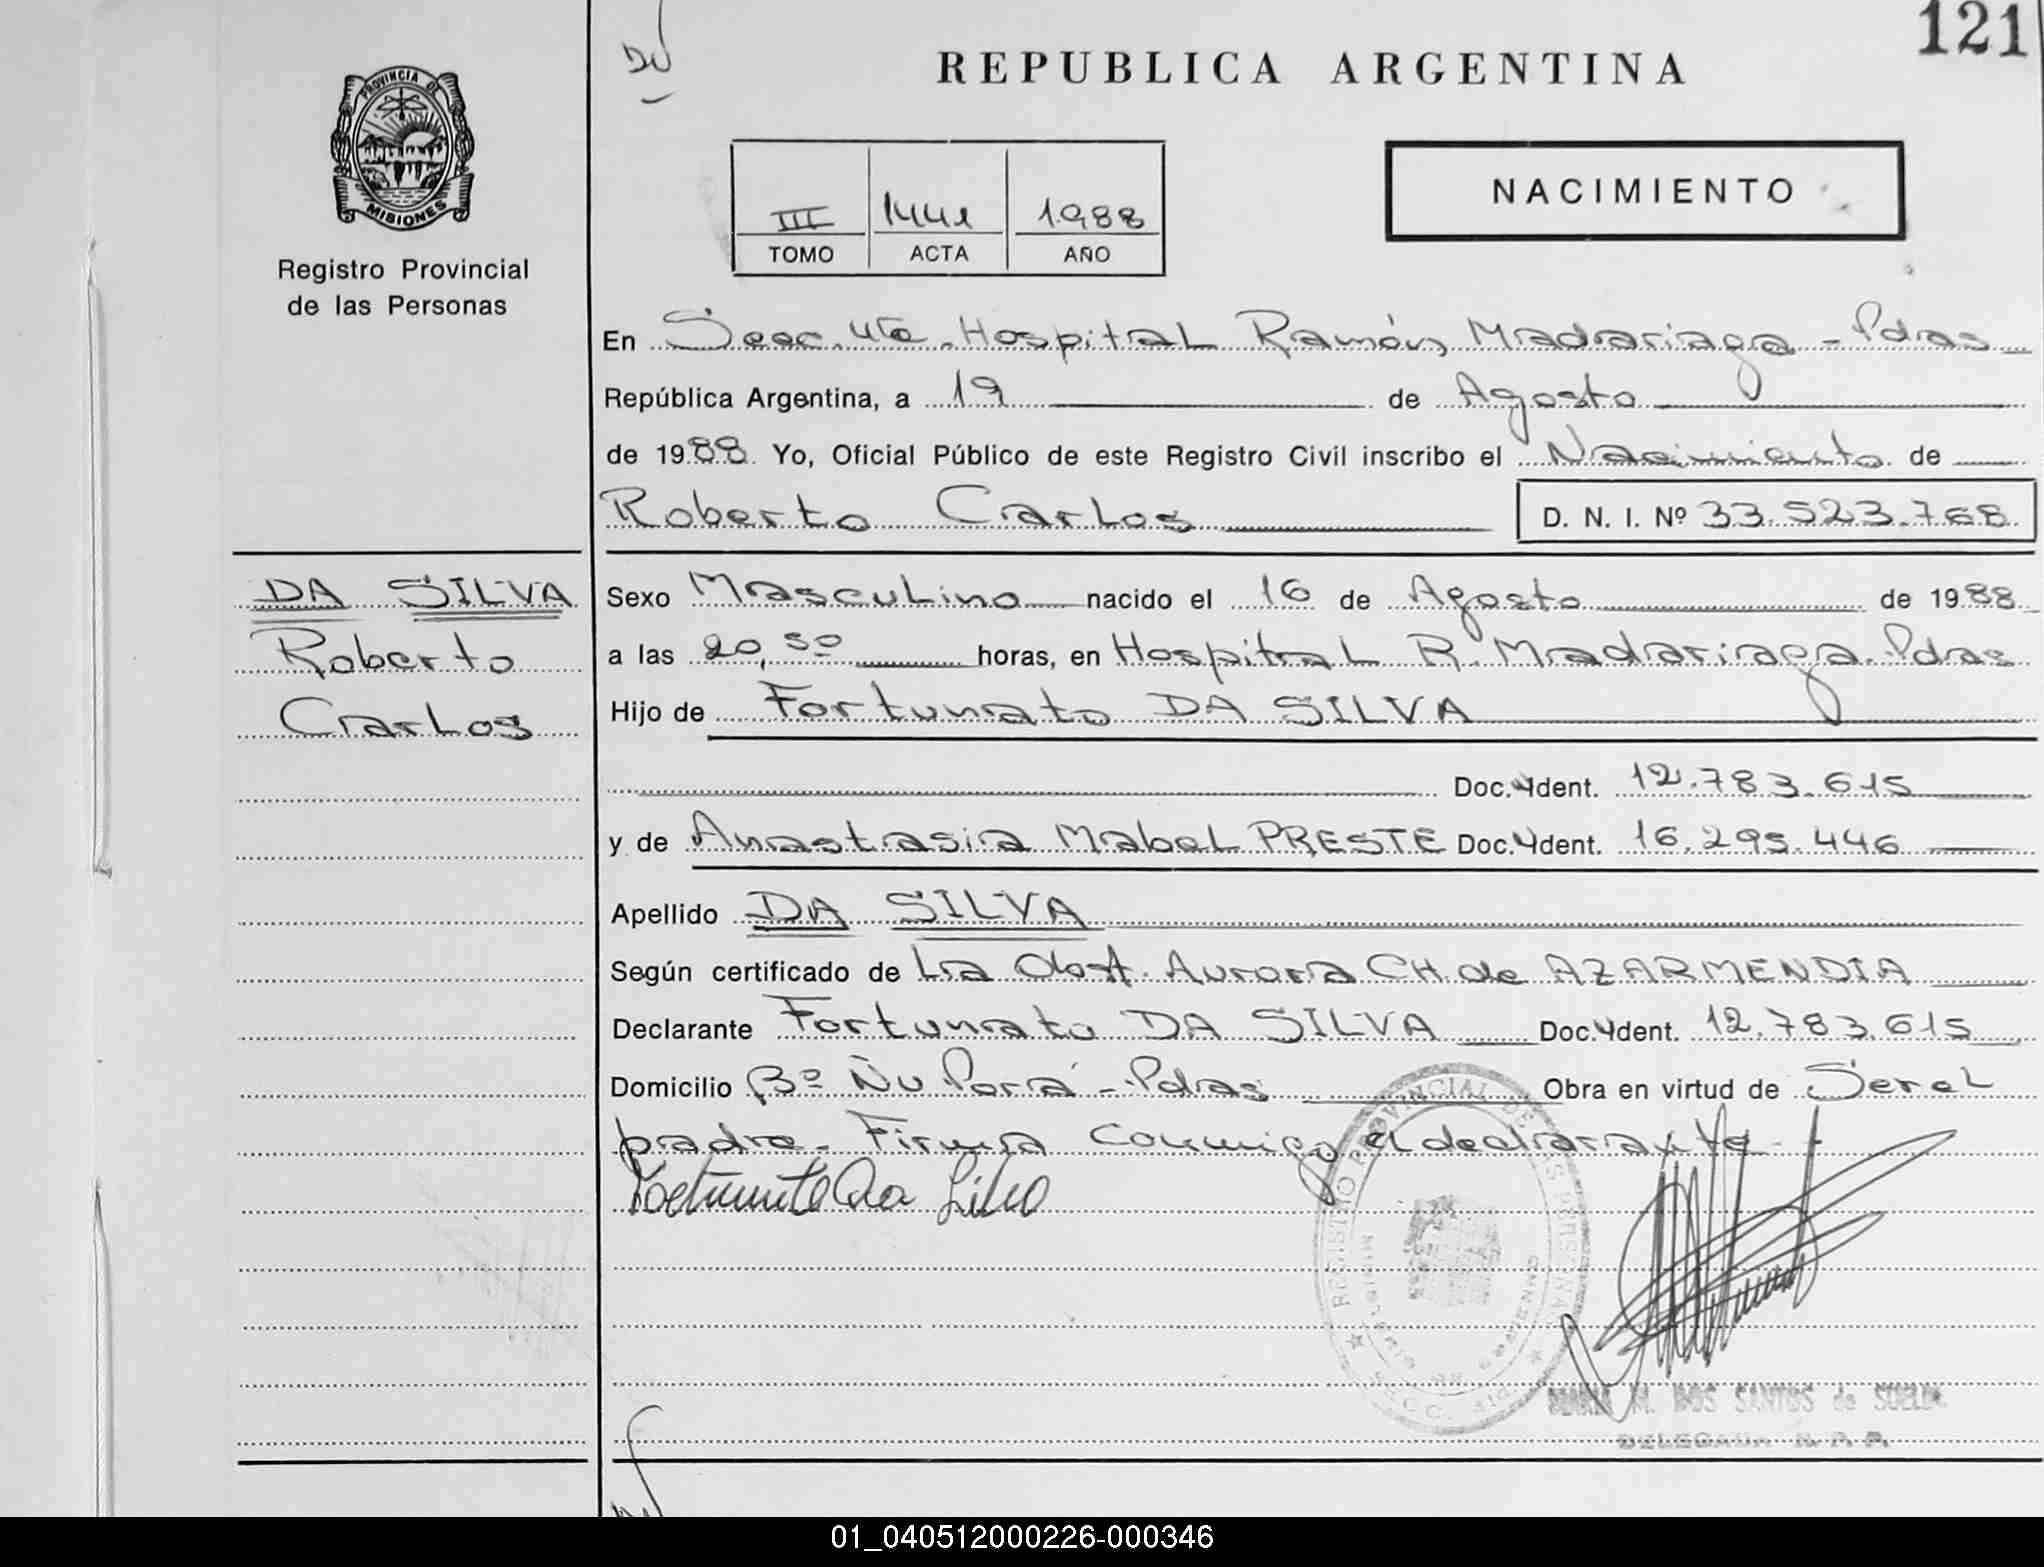 121
REPUBLICA ARGENTINA
PROVINCIA DE
MISIONES
Registro Provincial
de las Personas
NACIMIENTO
III 1441 1988
TOMO ACTA AÑO
En Secc. 4ta. Hospital Ramón Madariaga - Pdas
República Argentina, a 19 de Agosto
de 1988 Yo, Oficial Público de este Registro Civil inscribo el Nacimiento de
Roberto Carlos D. N. I. Nº 33.523.768
DA SILVA
Roberto
Carlos
Sexo Masculino nacido el 16 de Agosto de 1988
a las 20,50 horas, en Hospital R. Madariaga. Pdas
Hijo de Fortunato DA SILVA
Doc. Ident. 12.783.615
y de Anastasia Mabel PRESTE Doc. Ident. 16.295.446
Apellido DA SILVA
Según certificado de La Obst. Aurora CH. de AZARMENDIA
Declarante Fortunato DA SILVA Doc. Ident. 12.783.615
Domicilio Bº Ñu Porá - Pdas Obra en virtud de Ser el
padre. Firma conmigo el declarante.
Fortunato Da Silva
REGISTRO PROVINCIAL DE LAS PERSONAS
MISIONES
MARIA M. DOS SANTOS de
DELEGADA R. P. P.
01_040512000226-000346